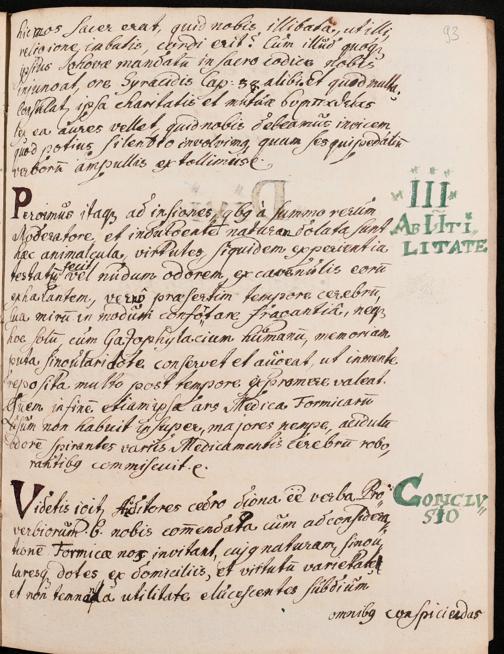 93
hirnos sacer erat, quid nobis illibata, utilli,
religione, imbutis, cordi erit? Cum illud quoq;
ipsius Jehovæ mandatū in sacro codice nobis
iniungat, ore Syracidis Cap: 38 alibiEt quod multa,
Consulat, ipsa charitatis et mutuæ συμπαθείας
lex ea aures vellet, quid nobis debeamus invicem
quod potius silentio involvimq, quam sesquipedaliū
verborū ampullis extollimus:
III
AB UTI
LITATE
Pergimus itaq; ad insignes, qbq a summo rerum
Moderatore, et indulgente natura dolata sunt
hæc animalcula, virtutes, siquidem experientia
testatū seu vel nudum odorem, ex cavernulis eorū
exhalantem, verno præsertim tempore cerebrū,
sua mirū in modum confortare fragantiâ, neq;
hoc solū, cum Gazophylacium humanū, memoriam
puta singulari dote conservet et augeat, ut in mente
reposita, multo post tempore expromere valeat.
Quem in finē etiam ipsa ars Medica Formicarū
usum non habuit insuper, majores nempe, acidulū
odorē spirantes variis Medicamentis cerebrū robo,
rantibq commiscuit.
CONCLV
SIO
Videtis igit, Auditores cedro digna eē verba Pro,
verbiorum 6. nobis comendata cum ad considera,
tionē Formicæ nos invitant, cujq naturam, singu
lares dotes ex domiciliis, et virtutū varietate
et non temnenda utilitate elucescentes subdium
omnibq conspiciendas